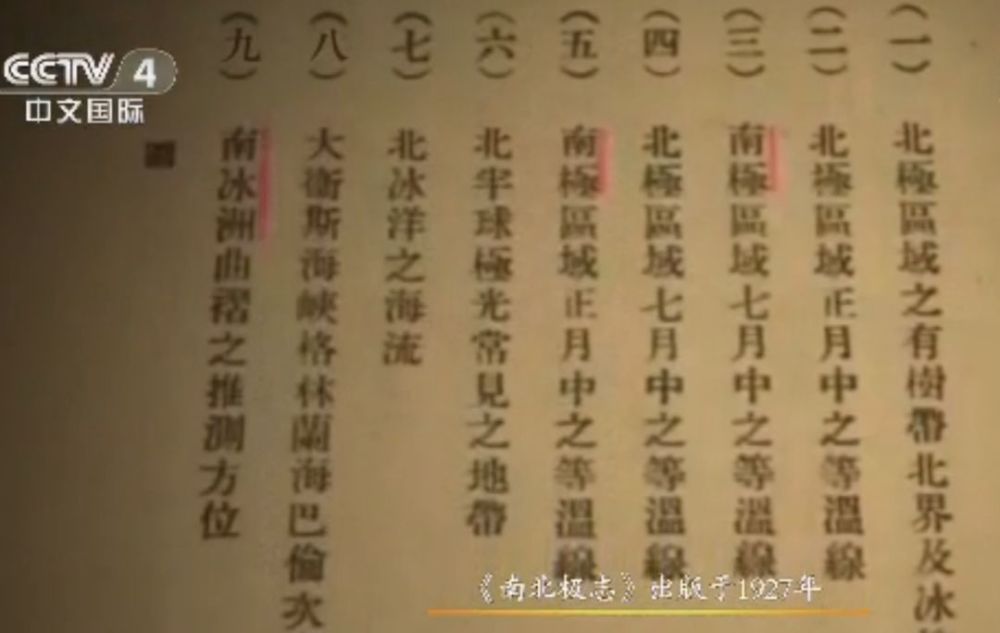 CCTV 4
中文国际
（一）北極區域之有樹帶北界及冰
（二）北極區域正月中之等溫線
（三）南極區域七月中之等溫線
（四）北極區域七月中之等溫線
（五）南極區域正月中之等溫線
（六）北半球極光常見之地帶
（七）北冰洋之海流
（八）大衛斯海峽格林蘭海巴倫次
（九）南冰洲曲褶之推測方位
《南北极志》出版于1927年